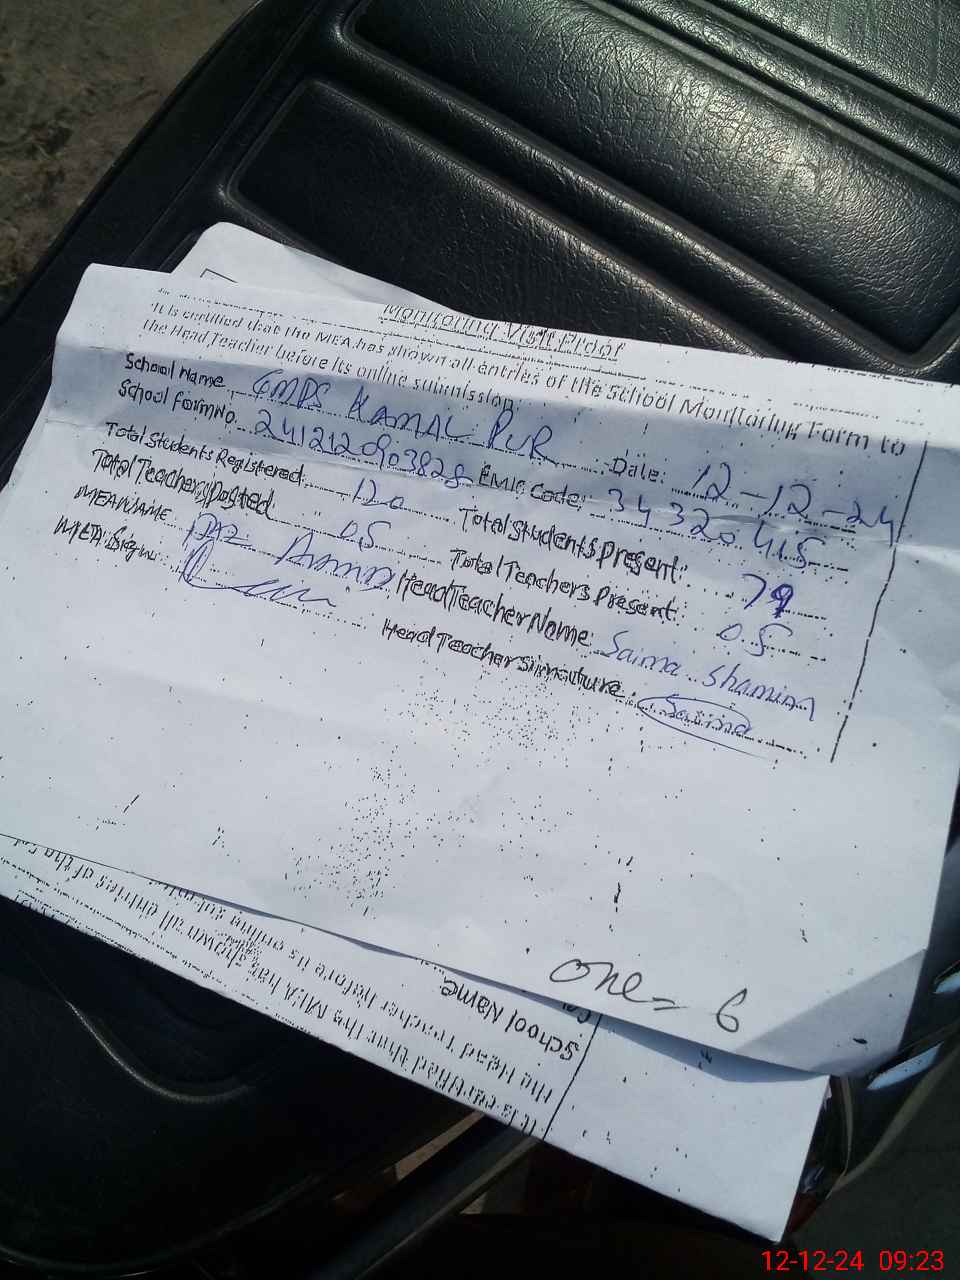 Monitoring Visit Proof
It is certified that the MEA has shown all entries of the School Monitoring Form to
the Head Teacher before its online submission.
School Name GMPS KAMAL PUR Date: 12-12-24
School Form No. 2412120903828 EMIS Code: 34320415
Total Students Registered: 120 Total Students Present: 79
Total Teachers Posted 05 Total Teachers Present: 05
MEA NAME Head Teacher Name: Saima Shamim
MEA Sign: Head Teacher Signature: Saima
one = 6
School Name
the Head Teacher before its online
It is certified that the MEA has shown all entries of the
12-12-24 09:23